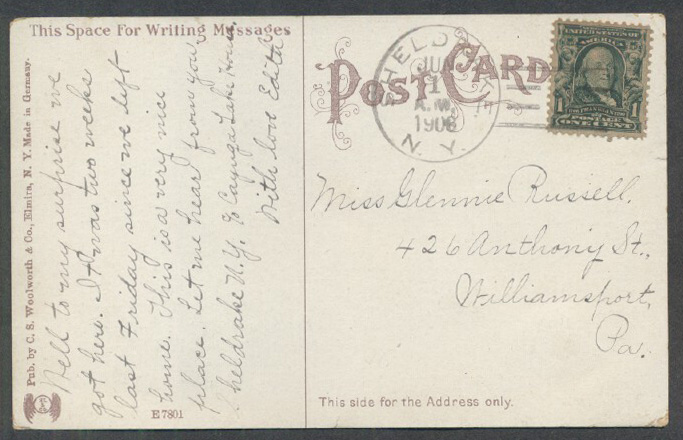 This Space For Writing Messages
Well to my surprise we
got here. It was two weeks
last Friday since we left
home. This is a very nice
place. Let me hear from you
Sheldrake N.Y. % Cayuga Lake House
With love Edith
Pub. by C. S. Woolworth & Co., Elmira, N. Y. Made in Germany.
E 7801
POST CARD
SHELDRAKE
JUL
1
A.M.
1908
N. Y.
UNITED STATES OF
AMERICA
1 1
POSTAGE
ONE CENT
Miss Glennie Russell,
426 Anthony St.,
Williamsport,
Pa.
This side for the Address only.